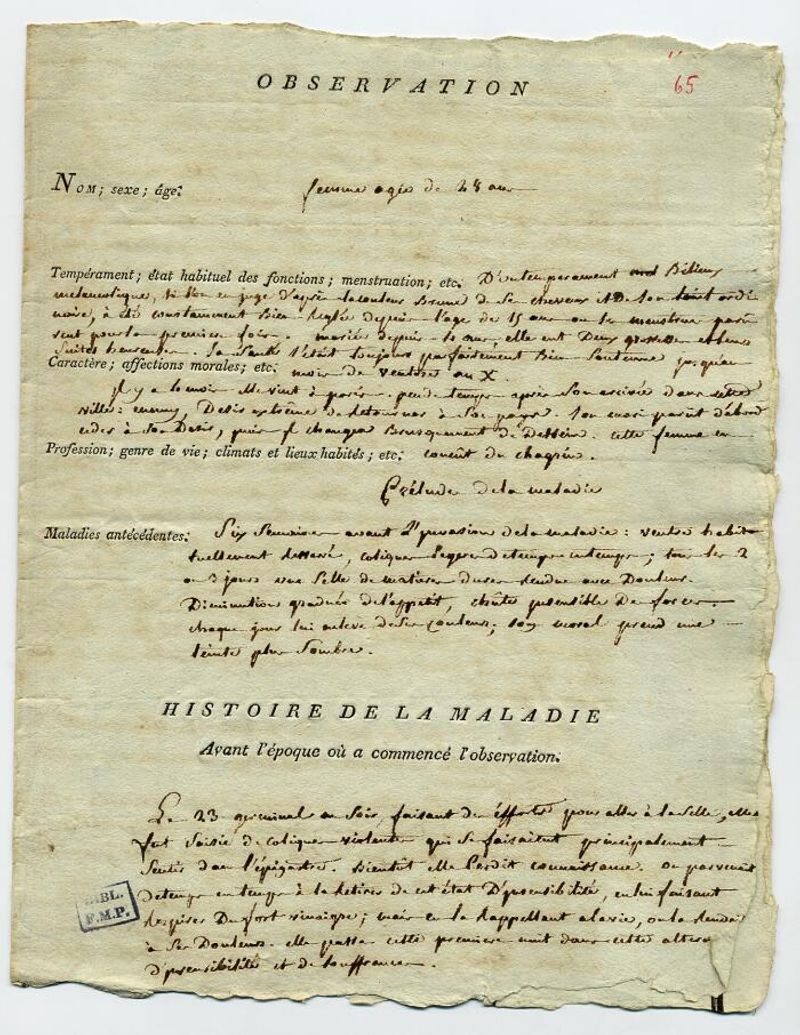 OBSERVATION
65
NOM; sexe; âge: femme agée de 28 ans
Tempérament; état habituel des fonctions; menstruation; etc. D'un temperament Bilieux
melancolique, si l'on en juge d'après la couleur Brune de Ses cheveux et De Son teint ordi
naire, a été constamment Bien reglée depuis l'age de 15 ans ou les menstrues paru
rent pour la premiere fois. mariée depuis ans, elle eut Deux grossesses et leurs
Suites heureuses. Sa Santé S'était toujours parfaitement Bien Soutenue jusqu'au
Caractère; affections morales; etc. mois de ventose an X.
Il y a 6 mois elle vint à paris. peu de temps après Son arrivée dans cette
ville: ennuy, Desir extrême de retourner à Son pays. Son mari parut d'abord
ceder à Son Desir, puis il changea Brusquement de Dessein. cette femme en
Profession; genre de vie; climats et lieux habités; etc. conçut du chagrin.
Prélude de la maladie
Maladies antécédentes. Six Semaines avant l'invasion de la maladie: ventre habit
tuellement resserré, coliques legeres de temps en temps; tous les 2
ou 3 jours une Selle de matieres dures rendue avec Douleur.
Diminution graduée de l'appetit, chûte insensible De forces.
chaque jour lui enleve de Ses couleurs; Son moral prend une
teinte plus Sombre.
HISTOIRE DE LA MALADIE
Avant l'époque où a commencé l'observation.
Le 23 germinal au Soir, faisant des éfforts pour aller à la Selle, elle
fut Saisie de coliques violentes qui Se faisaient principalement
Sentir dans l'épigastre. Bientôt elle Perdit connaissance. on parvenait
de temps en temps à la retirer de cet état D'insensibilité, en lui faisant
respirer Du fort vinaigre; mais en la Rappellant à la vie, on la rendait
à Ses Douleurs. elle passa cette premiere nuit dans cette altern
d'insensibilité et de souffrances.
BIBL.
F.M.P.